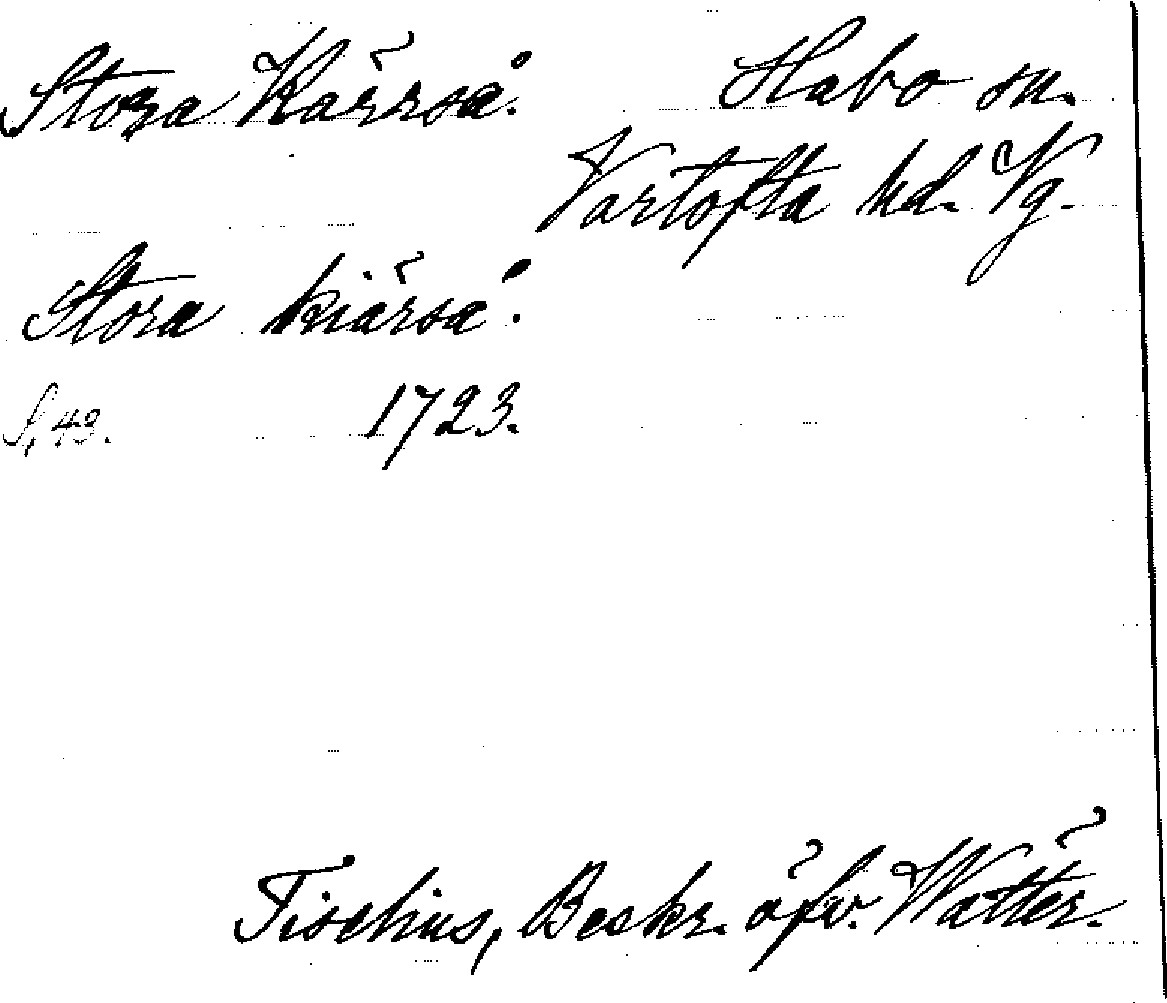 Stora Kärrså. Habo sn.
Vartofta hd. Vg.
Stora kiärså.
S. 43. 1723.
Tiselius, Beskr. öfv. Wätter.